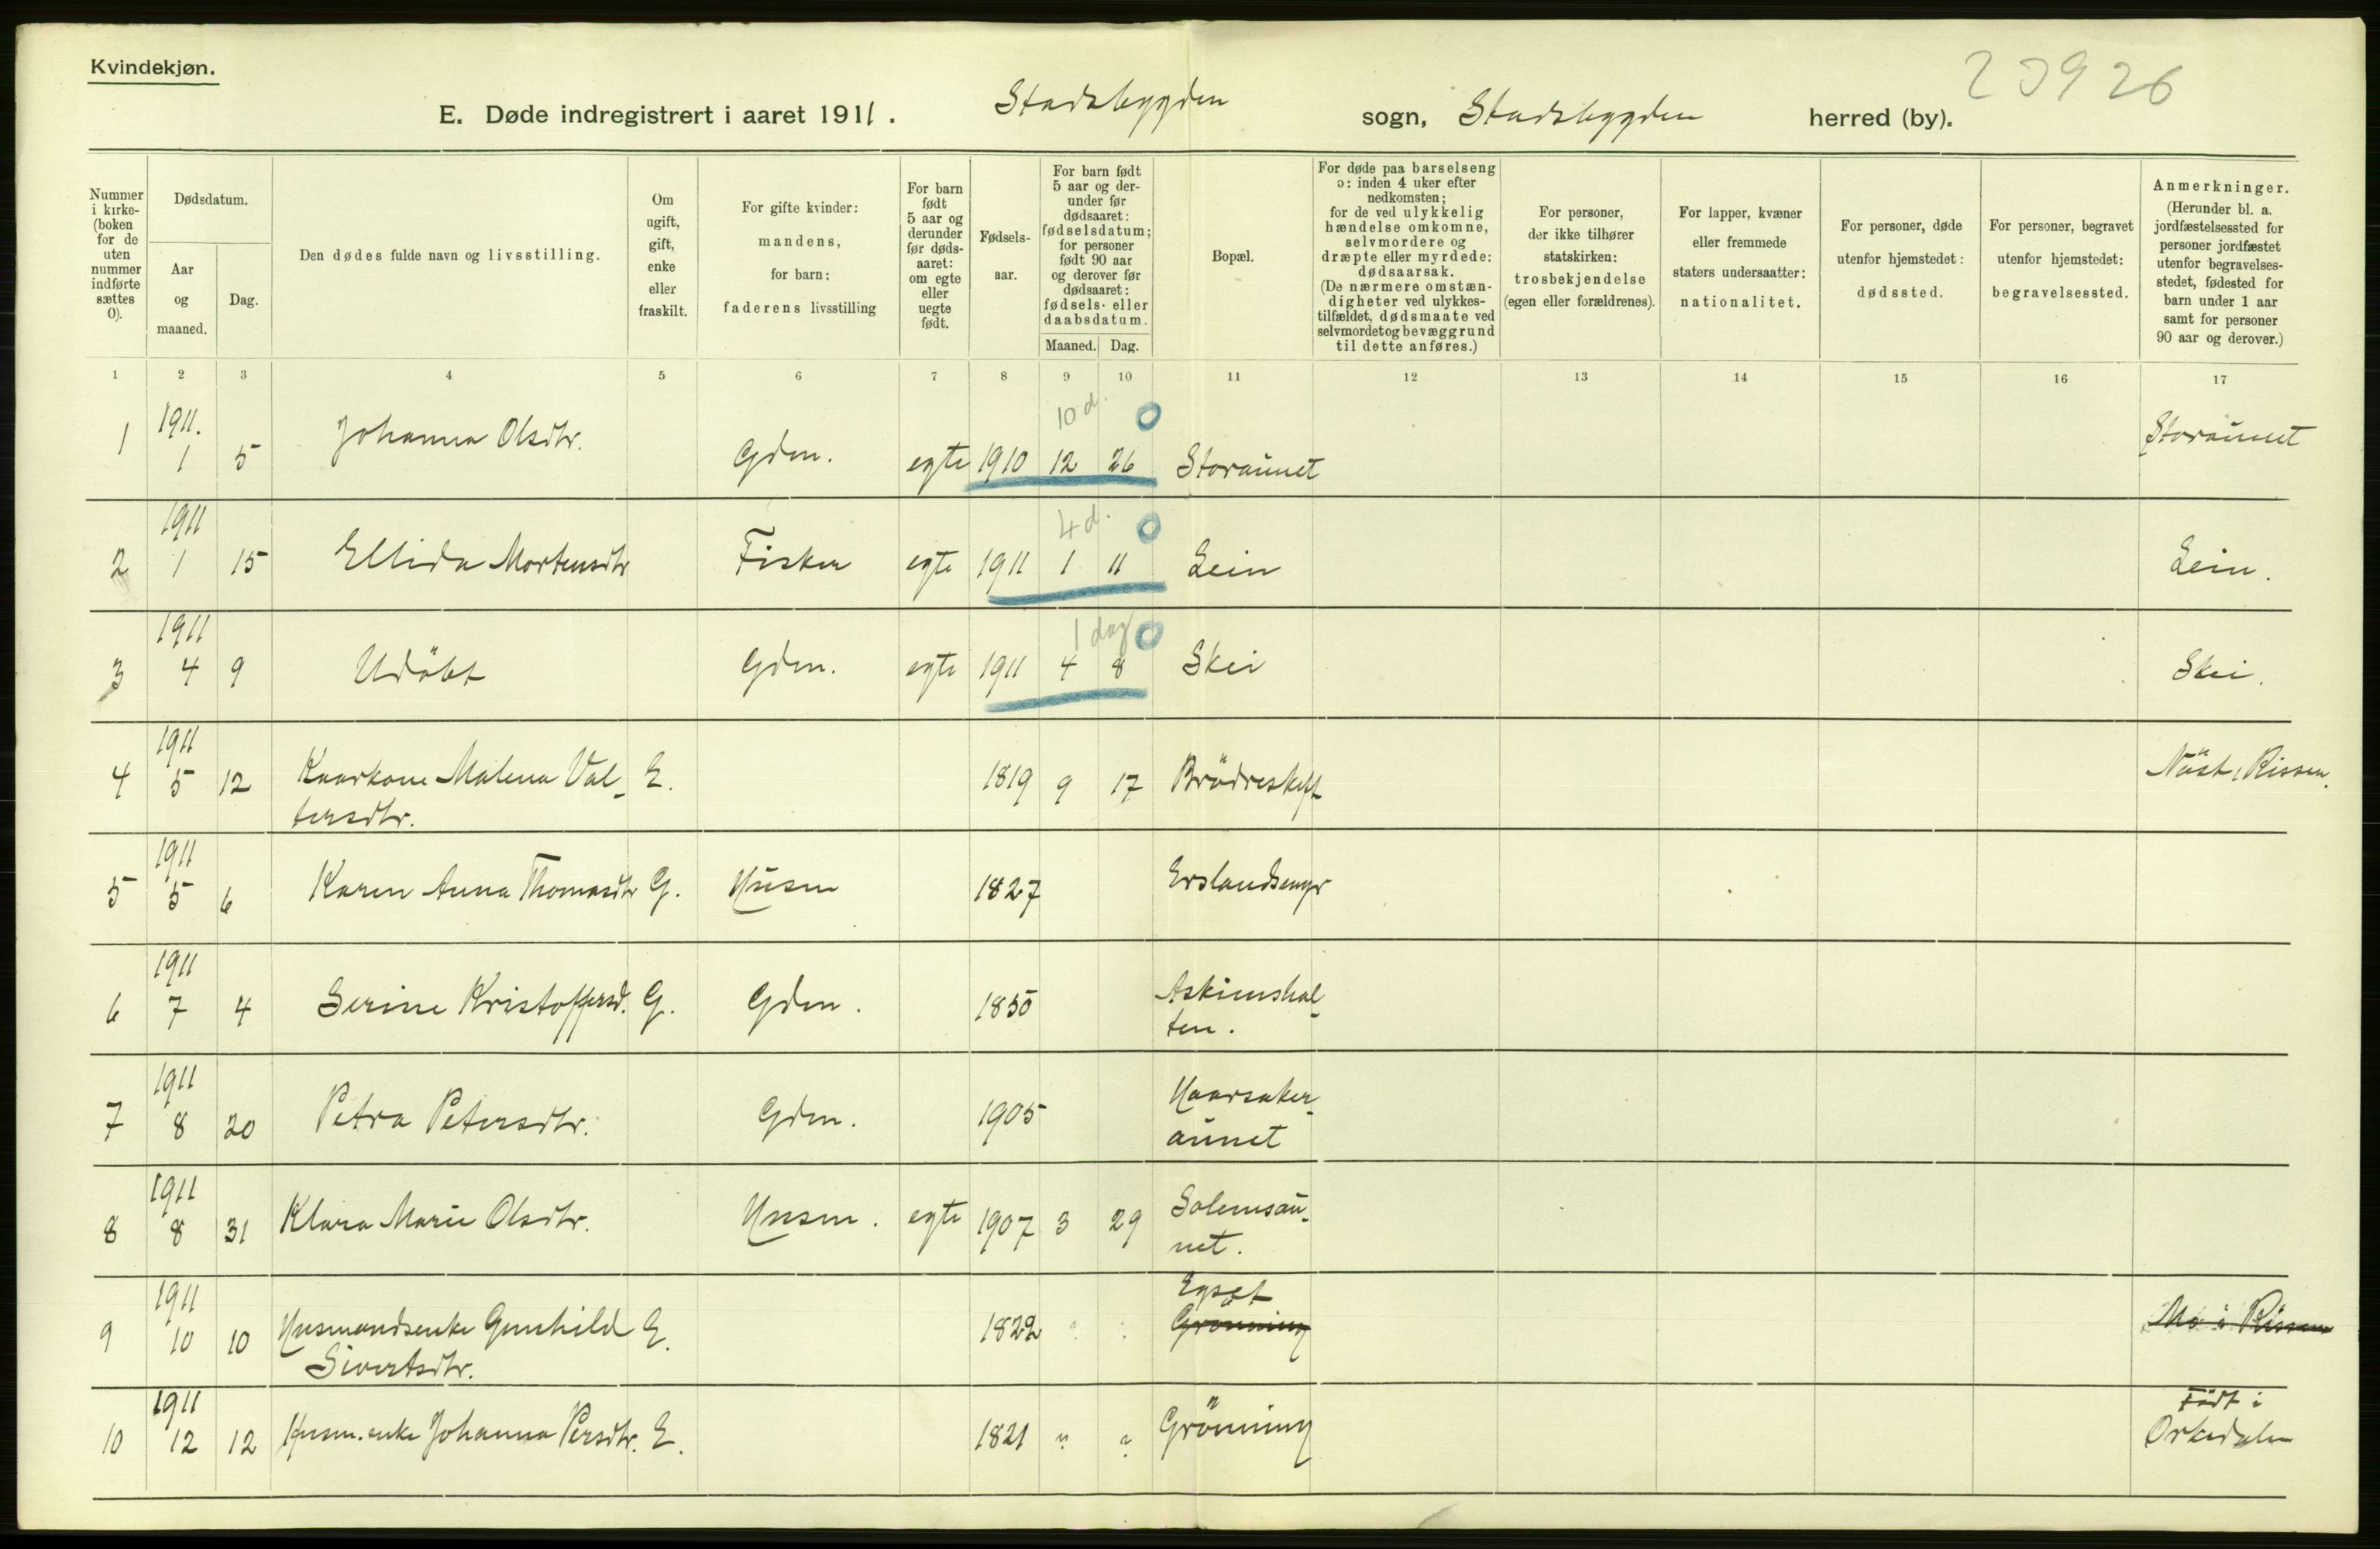 Kvindekjøn.
20926
E. Døde indregistrert i aaret 1911. Stadsbygden sogn, Stadsbygden herred (by).
Nummer i kirke- (boken for de uten nummer indførte sættes 0).
Dødsdatum.
Aar og maaned.
Dag.
Den dødes fulde navn og livsstilling.
Om ugift, gift, enke eller fraskilt.
For gifte kvinder: mandens, for barn: faderens livsstilling
For barn født 5 aar og derunder før døds- aaret: om egte eller uegte født.
Fødsels- aar.
For barn født 5 aar og der- under før dødsaaret: fødselsdatum; for personer født 90 aar og derover før dødsaaret: fødsels- eller daabsdatum.
Maaned. Dag.
Bopæl.
For døde paa barselseng ɔ: inden 4 uker efter nedkomsten; for de ved ulykkelig hændelse omkomne, selvmordere og dræpte eller myrdede: dødsaarsak. (De nærmere omstæn- digheter ved ulykkes- tilfældet, dødsmaate ved selvmordet og bevæggrund til dette anføres.)
For personer, der ikke tilhører statskirken: trosbekjendelse (egen eller forældrenes).
For lapper, kvæner eller fremmede staters undersaatter: nationalitet.
For personer, døde utenfor hjemstedet: dødssted.
For personer, begravet utenfor hjemstedet: begravelsessted.
Anmerkninger. (Herunder bl. a. jordfæstelsessted for personer jordfæstet utenfor begravelses- stedet, fødested for barn under 1 aar samt for personer 90 aar og derover.)
1 2 3 4 5 6 7 8 9 10 11 12 13 14 15 16 17
1911. 10 d. 0
1 1 5 Johanna Olsdtr. Gdm. egte 1910 12 26 Storaunet Storaunet
1911 4 d. 0
2 1 15 Ellida Mortensdtr Fisker egte 1911 1 11 Lein Lein.
1911 1 dag 0
3 4 9 Udöbt Gdm. egte 1911 4 8 Skei Skei.
1911
4 5 12 Kaarkone Malena Val- E. 1819 9 17 Brödreskift Näst, Rissen.
tersdtr.
1911
5 5 6 Karen Anna Thomasdtr G. Husm 1827 Erslandsmyr
1911
6 7 4 Serine Kristoffersd. G. Gdm. 1850 Askimshal-
ten.
1911
7 8 20 Petra Petersdtr. Gdm. 1905 Haarsaker-
aunet
1911
8 8 31 Klara Marie Olsdtr. Husm. egte 1907 3 29 Solemsau-
net.
1911 Egset
9 10 10 Husmandsenke Gunhild E. 1822 " " Grönning Mo i Rissen
Sivertsdtr.
1911 Födt i
10 12 12 Husm. enke Johanna Persdtr. E. 1821 " " Grönning Orkedalen